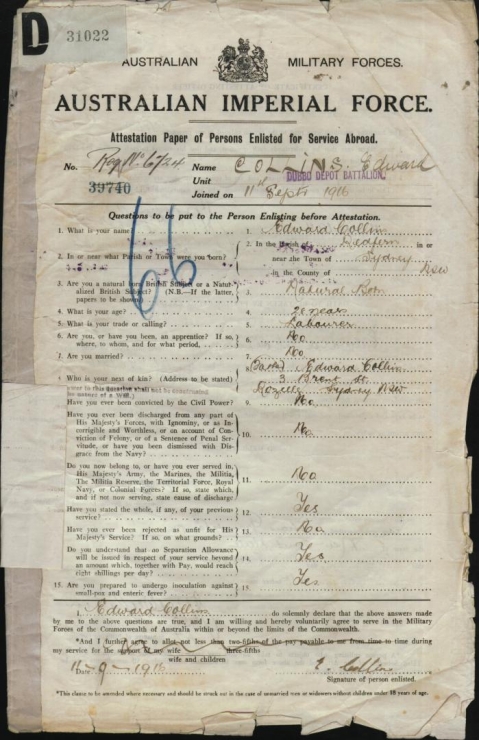 D 31022
AUSTRALIAN MILITARY FORCES.
AUSTRALIAN IMPERIAL FORCE.
Attestation Paper of Persons Enlisted for Service Abroad.
No. Reg No 6724 Name COLLINS. Edward
39740 Unit DUBBO DEPOT BATTALION
Joined on 11th Sept 1916
Questions to be put to the Person Enlisting before Attestation.
66
1. What is your name 1. Edward Collins
2. In or near what Parish or Town were you born? 2. In the Parish of Redfern in or
near the Town of Sydney
in the County of NSW
3. Are you a natural born British Subject or a Natur-
alized British Subject? (N.B.—If the latter,
papers to be shown) 3. Natural Born
4. What is your age? 4.
5. What is your trade or calling? 5. Labourer
6. Are you, or have you been, an apprentice? If so,
where, to whom, and for what period. 6. No
7. Are you married? 7. No
8. Who is your next of kin? (Address to be stated) Edward Collins
3 St
Rozelle Sydney NSW
Have you ever been convicted by the Civil Power? 9. No
Have you ever been discharged from any part of
His Majesty's Forces, with Ignominy, or as In-
corrigible and Worthless, or on account of Con-
viction of Felony, or of a Sentence of Penal Ser-
vitude, or have you been dismissed with Dis-
grace from the Navy? 10. No
Do you now belong to, or have you ever served in,
His Majesty's Army, the Marines, the Militia,
The Militia Reserve, the Territorial Force, Royal
Navy, or Colonial Forces? If so, state which,
and if not now serving, state cause of discharge 11. No
Have you stated the whole, if any, of your previous
service? 12. Yes
Have you ever been rejected as unfit for His
Majesty's Service? If so, on what grounds? 13. No
Do you understand that no Separation Allowance
will be issued in respect of your service beyond
an amount which, together with Pay, would reach
eight shillings per day? 14. Yes
15. Are you prepared to undergo inoculation against
small-pox and enteric fever? 15. Yes
I, Edward Collins do solemnly declare that the above answers made
by me to the above questions are true, and I am willing and hereby voluntarily agree to serve in the Military
Forces of the Commonwealth of Australia within or beyond the limits of the Commonwealth.
*And I further agree to allot not less than two-fifths of the pay payable to me from time to time during
my service for the support of my wife three-fifths
wife and children
Date -9-1916 E. Collins
Signature of person enlisted.
*This clause to be amended where necessary and should be struck out in the case of unmarried men or widowers without children under 18 years of age.